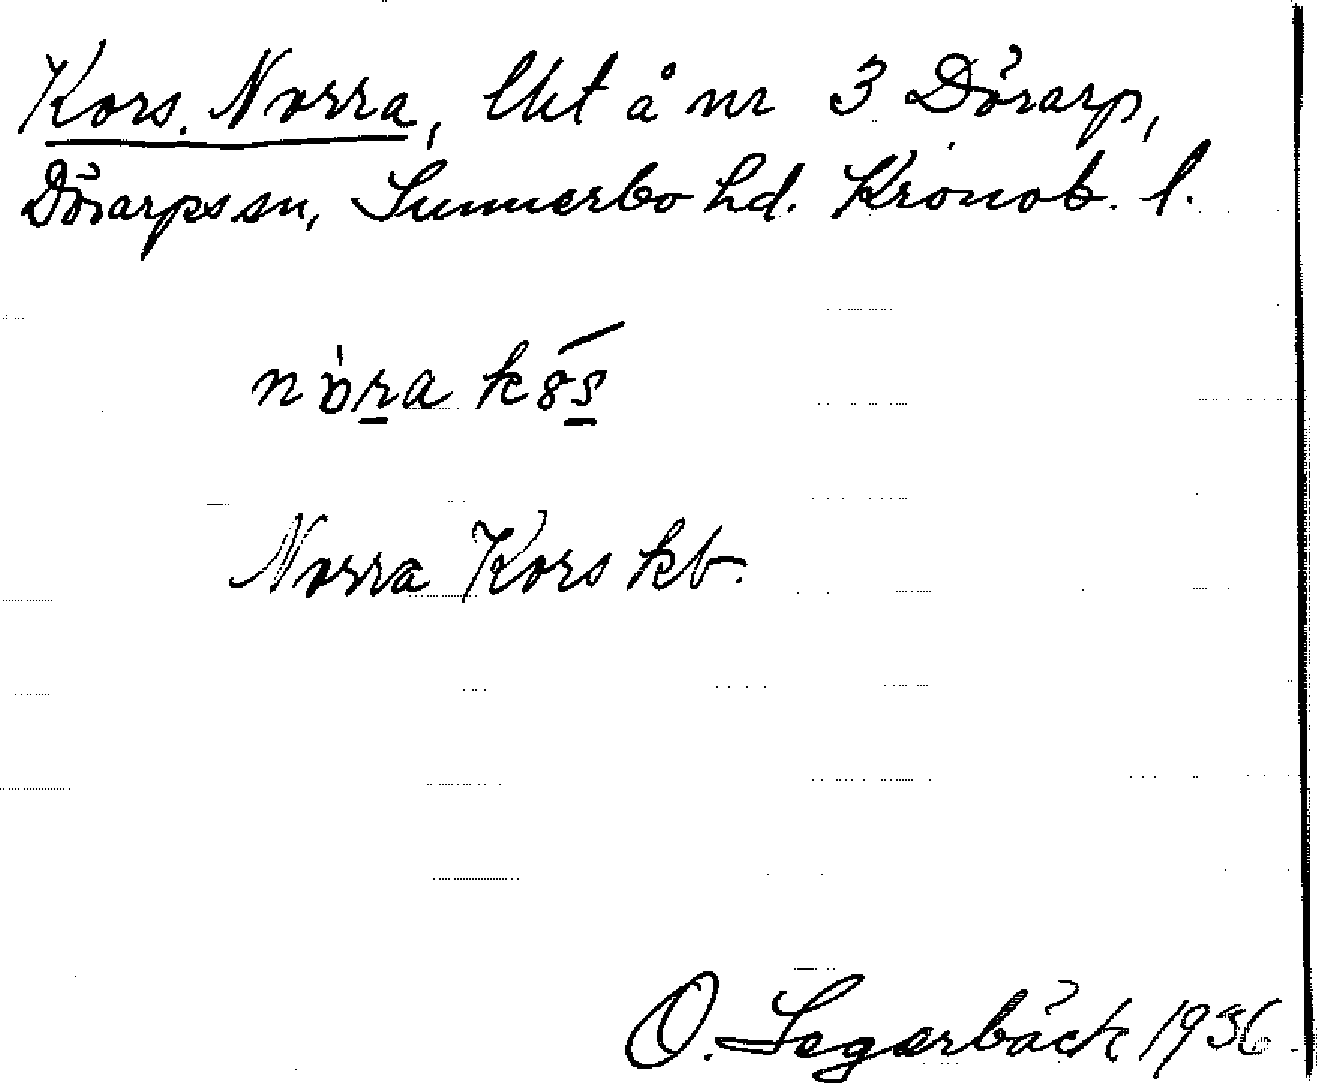 Kors, Norra, lht å nr 3 Dörarp,
Dörarps sn, Sunnerbo hd. Kronob. l.
Norra Kors kb.
O. Segerbäck 1936